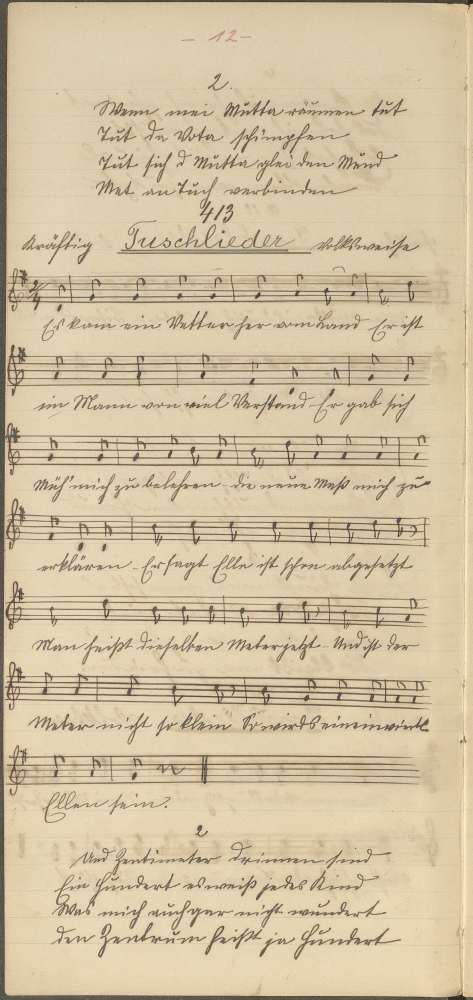 - 12 -
2.
Wenn mei Mutta räumen tut
Tut da Vota schimpfen
Tut sich d Mutta glei den Mund
Met an Tuch verbinden
413
Kräftig Tuschlieder Volksweise
2/4
Es kam ein Vetter her vom Land Er ist
ein Mann von viel Verstand Er gab sich
Müh' mich zu belehren die neue Maß mich zu
erklären. Er sagt Elle ist schon abgesetzt
Man heißt dieselben Meter jetzt. Und ist der
Meter nicht so klein So wirds ein einviertl
Ellen sein.
2
Und Zentimeter drinnen sind
Ein Hundert es weiß jedes Kind
Was mich auch gar nicht wundert
den Zentrum heißt ja Hundert